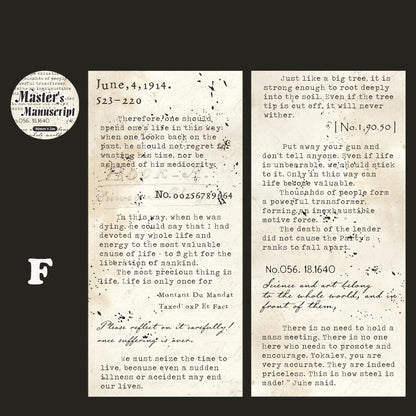 Master's
Manuscript
F
June,4,1914.
523-220
Therefore, one should
spend one's life in this way:
when one looks back on the
past, he should not regret for
wasting his time, nor be
ashamed of his mediocrity.
No.00256789064
In this way, when he was
dying, he could say that I had
devoted my whole life and
energy to the most valuable
cause of life - to fight for the
liberation of mankind.
The most precious thing is
life. Life is only once for
-Montant Du Mandat
Taxed'oxP Et Fact
Please reflect on it carefully!
once suffering is over.
We must seize the time to
live, because even a sudden
illness or accident may end
our lives.
Just like a big tree, it is
strong enough to root deeply
into the soil. Even if the tree
tip is cut off, it will never
wither.
No.1,90,50
Put away your gun and
don't tell anyone. Even if life
is unbearable, we should stick
to it. Only in this way can
life become valuable.
Thousands of people form
a powerful transformer,
forming an inexhaustible
motive force.
The death of the leader
did not cause the Party's
ranks to fall apart.
No.056. 18.1640
Science and art belong
to the whole world, and in
front of them,
There is no need to hold a
mass meeting. There is no one
here who needs to promote and
encourage. Tokalev, you are
very accurate. They are indeed
priceless. This is how steel is
made!" Juhe said.